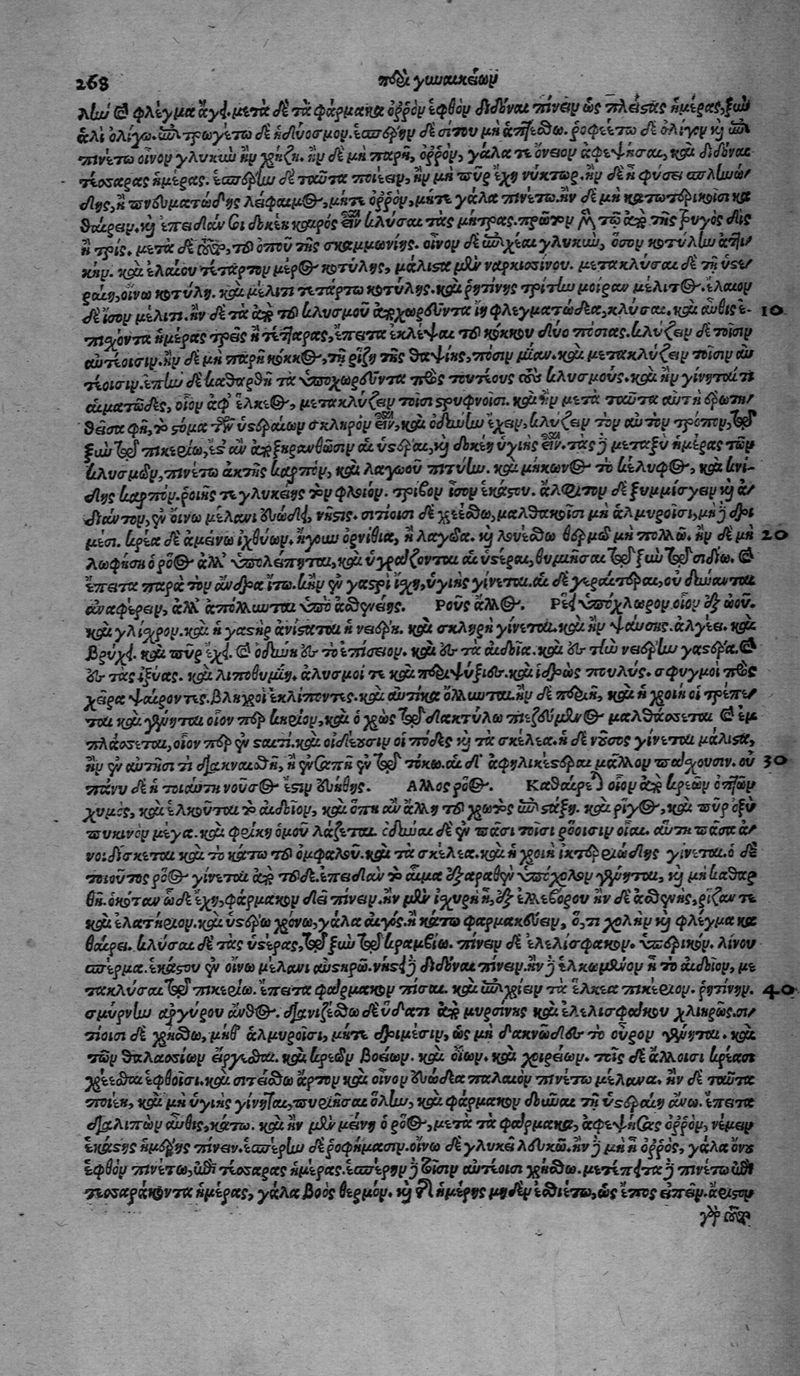 268 περὶ γυναικείων
λὴν καὶ φλέγμα ἄγει. μετὰ δὲ τὰ φάρμακα ὀρρὸν ἑφθὸν διδόναι πίνειν ὡς πλείστας ἡμέρας, ξὺν
ἁλὶ ὀλίγῳ. ἐπιτρωγέτω δὲ ἡδύοσμον. ἑσπέρην δὲ σίτου μὴ ἁπτέσθω. ροφεέτω δὲ ὀλίγον καὶ ἐπι
πινέτω οἶνον γλυκὺν ἢν χρήζῃ. ἢν δὲ μὴ παρῇ, ὀρρὸν, γάλα τε ὄνειον ἀφεψήσαι, καὶ διδόναι
τέσσαρας ἡμέρας. ἑσπέρην δὲ ταῦτα ποιέειν, ἢν μὴ πῦρ ἔχῃ νύκτωρ. ἢν δὲ ἡ φύσει σπληνώ
δης, ἢ πνευματώδης λείφαιμος, μήτε ὀρρὸν, μήτε γάλα πινέτω. ἢν δὲ μὴ κατωτερικοῖσι κα
θαίρειν. καὶ ἐπειδάν σοι δοκέῃ καιρὸς εἶναι κλύσαι τὰς μήτρας. πρῶτον μὲν τῷ ἀπὸ τῆς τρυγὸς δὶς
ἢ τρίς. μετὰ δὲ ταῦτα, τοῦ ὀποῦ τῆς σκαμμωνίης. οἶνον δὲ ἐπιχέαι γλυκὺν, ὅσον κοτύλην ἀττι
κήν. καὶ ἐλαίου τέταρτον μέρος κοτύλης, μάλιστα μὲν ναρκισσίνου. μετακλύσαι δὲ τῇ ὑστε
ραίῃ, οἴνῳ κοτύλῃ. καὶ μέλιτι τετάρτῳ κοτύλης. καὶ ρητίνης τρίτην μοῖραν μέλιτος. ἔλαιον
δὲ ἴσον μέλιτι. ἢν δὲ τὰ ἀπὸ τοῦ κλυσμοῦ ἀποχωρεῦντα ᾖ φλεγματώδεα, κλύσαι. καὶ αὖθις ἐ- 10
πισχόντα ἡμέρας τρεῖς ἢ τέτταρας, ἔπειτα ἐκλέψαι τοῦ κόκκου δύο πόσιας. κλύζειν δὲ τοῖσιν
αὐτέοισιν. ἢν δὲ μὴ παρῇ κόκκος, τῇ ρίζῃ τῆς θαψίης, πόσιν μίαν. καὶ μετακλύζειν τοῖσιν αὐ
τέοισιν. ἐπὴν δὲ καθαρθῇ τὰ ὑποχωρεῦντα πρὸς τουτέους τοὺς κλυσμούς. καὶ ἢν γίνηταί τι
αἱματῶδες, οἷον ἀφ' ἕλκεος, μετακλύζειν τοῖσι στρυφνοῖσι. καὶ ἢν μετὰ ταῦτα αὐτὴ ἐρωτη
θεῖσα φῇ, τὸ στόμα τῶν ὑστερέων σκληρὸν εἶναι, καὶ ὀδύνην ἔχειν, κλύζειν τὸν αὐτὸν τρόπον, τῷ
ξὺν τῷ πικερίῳ, ἔστ' ἂν ἀποξηρανθῶσιν αἱ ὑστέραι, καὶ δοκέῃ ὑγιὴς εἶναι. τὰς δὲ μεταξὺ ἡμέρας τῶν
κλυσμῶν, πινέτω ἀκτῆς καρπὸν, καὶ λαγωοῦ πιτύην. καὶ μήκωνος τὸ κέλυφος, καὶ κνί-
δης καρπόν. ροιῆς τε γλυκείης τὸν φλοιόν. τρίβων ἴσον ἑκάστου. ἄλφιτον δὲ ξυμμίσγειν καὶ ἀ
δίαντον, ἐν οἴνῳ μέλανι εὐώδει, νῆστις. σιτίοισι δὲ χρεέσθω, μαλθακοῖσι μὴ ἁλμυροῖσι, μὴ δὲ δρι
μέσι. κρέα δὲ ἀμείνω ἰχθύων. ἤγουν ὀρνίθια, ἢ λαγῷα. καὶ λουέσθω θερμῷ μὴ πολλῷ. ἢν δὲ μὴ 20
λωφήσῃ ὁ ρόος ἀλλ' ὑπολείπηται, καὶ ὑγράζονται αἱ ὑστέραι, θυμιῆσαι τῷ ξὺν τῷ σιδίῳ. καὶ
ἔπειτα παρὰ τὸν ἄνδρα ἴτω. κἢν ἐν γαστρὶ ἴσχῃ, ὑγιὴς γίνεται. αἱ δὲ γεραίτεραι, οὐ δύνανται
ἀναφέρειν, ἀλλ' ἀπόλλυνται ὑπὸ ἀσθενείης. Ροῦς ἄλλος. Ρεῖ ὑπόχλωρον οἷον ἐξ ὠοῦ.
καὶ γλίσχρον. καὶ ἡ γαστὴρ ἀνίσταται ἡ νειαίρη. καὶ σκληρὴ γίνεται. καὶ ἢν ψαύσῃς. ἀλγέει. καὶ
βρύχει. καὶ πῦρ ἔχει. καὶ ὀδύνη ἐς τὸ ἐπίσειον. καὶ ἐς τὰ αἰδοῖα. καὶ ἐς τὴν νειαίρην γαστέρα. καὶ
ἐς τὰς ἰξύας. καὶ λιποθυμίη. ἀλυσμοί τε καὶ περίψυξις. καὶ ἱδρὼς πουλύς. σφυγμοὶ πρὸς
χεῖρα ψαίροντες. βληχροὶ ἐκλίποντες. καὶ αὐτίκα ὄλλυνται. ἢν δὲ περιῇ, καὶ ἡ χροιὴ οἱ τρέπε
ται καὶ γίνηται οἷον περ κηρίον, καὶ ὁ χρὼς τῷ δακτύλῳ πιεζεύμενος μαλθάσσεται καὶ ἐμ
πλάσσεται, οἷον περ ἐν σταιτί. καὶ οἰδέουσιν οἱ πόδες καὶ τὰ σκέλεα. ἡ δὲ νοῦσος γίνεται μάλιστα,
ἢν ἐν αὐτῇσί τι διακναισθῇ, ἢ ἐνσαπῇ ἐν τῷ τόκῳ. αἱ δ' ἀφηλικέστεραι μᾶλλον πάσχουσιν. οὐ 30
πάνυ δὲ ἡ τοιαύτη νοῦσος ἐστὶν εὐήθης. Αλλος ρόος. Καθαίρεται οἷον ἀπὸ κρεῶν ὀπτῶν
χυμὸς, καὶ ἑλκοῦται τὸ αἰδοῖον, καὶ ὅπη ἂν ἄλλῃ τοῦ χρωτὸς ἐπιστάξῃ. καὶ ρῖγος, καὶ πῦρ ὀξὺ
πυκινὸν μέγα. καὶ φρίκη ὁμοῦ λάζεται. ὀδύναι δὲ ἐν πᾶσι τοῖσι ρόοισιν οἷαι. αὕτη πᾶσα ἀ
νοιδίσκεται καὶ τὸ κάτω τοῦ ὀμφαλοῦ. καὶ τὰ σκέλεα. καὶ ἡ χροιὴ ἰκτεριώδης γίνεται. ὁ δὲ
τοιοῦτος ρόος γίνεται ἀπὸ τοῦδε. ἐπειδὰν τὸ αἷμα ἐξαραθὲν ὑπόχολον γένηται, καὶ μὴ καθαρ
θῇ. ὁκόταν ὧδε ἔχῃ, φάρμακον δεῖ πίνειν. ἢν μὲν ἰσχυρὴ ᾖ, ἐξ ἐλλεβόρου ἢν δὲ ἀσθενὴς, ρίζαν τε
καὶ ἐλατήριον. καὶ ὑστέρῳ χρόνῳ, γάλα αἰγός. ἢ κάτω φαρμακεύειν, ὅ, τι χολὴν καὶ φλέγμα κα
θαίρει. κλύσαι δὲ τὰς ὑστέρας, τῷ ξὺν τῷ κραμβίῳ. πίνειν δὲ ἐλελίσφακον. ὑπερικόν. λίνου
σπέρμα. ἑκάστου ἐν οἴνῳ μέλανι αὐστηρῷ. νήστει δὲ διδόναι πίνειν. ἢν δὲ ἑλκωμένον ᾖ τὸ αἰδοῖον, με
τακλύσαι τῷ πικερίῳ. ἔπειτα φάρμακον πῖσαι. καὶ ἐπιχρίειν τὰ ἕλκεα πικέριον. ρητίνην. 40
σμύρνην ἀργύρου ἄνθος. διανιζέσθω δὲ ὕδατι ἀπὸ μυρσίνης καὶ ἐλελισφάκου χλιηρῶς. σι
τίοισι δὲ χρήσθω, μήθ' ἁλμυροῖσι, μήτε δριμέσιν, ὡς μὴ δακνῶδες τὸ οὖρον γένηται. καὶ
τῶν θαλασσίων εἴργεσθαι. καὶ κρεῶν βοείων. καὶ οἴων. καὶ χοιρείων. τοῖς δὲ ἄλλοισι κρέασι
χρέεσθαι ἑφθοῖσι. καὶ σιτείσθω ἄρτον καὶ οἶνον εὐώδεα παλαιὸν πινέτω μέλανα. ἢν δὲ ταῦτα
ποιέῃ, καὶ μὴ ὑγιὴς γίνηται, πυριῆσαι ὅλην, καὶ φάρμακον δοῦναι τῇ ὑστεραίῃ ἄνω. ἔπειτα
διαλιπὼν αὖθις, κάτω. καὶ ἢν μὲν μένῃ ὁ ρόος, μετὰ τὰ φάρμακα, ἀφεψήσας ὀρρὸν, νέμειν
ἑκάστης ἡμέρης πίνειν. ἑσπέρην δὲ ροφήμασιν. οἴνῳ δὲ γλυκεῖ λευκῷ. ἢν δὲ μὴ ᾖ ὀρρὸς, γάλα ὄνου
ἑφθὸν πινέτω, ἐπὶ τέσσαρας ἡμέρας. ἑσπέρην δὲ τοῖσιν αὐτέοισι χρήσθω. μετέπειτα δὲ πινέτω ἐπὶ
τεσσαράκοντα ἡμέρας, γάλα βοὸς θερμόν. καὶ δι' ἡμέρης μηδὲν ἐσθιέτω, ὡς ἔπος εἰπεῖν. ἄριστον
γὰρ ταῦτα